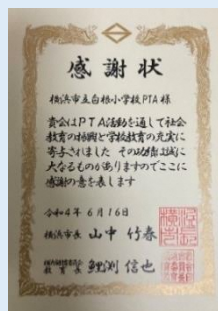 感謝状
横浜市立白根小学校PTA 様
貴会はPTA活動を通して社会
教育の振興と学校教育の充実に
寄与されました その功績は誠に
大なるものがありますのでここに
感謝の意を表します
令和4年6月16日
横浜市長 山中竹春
横浜市教育委員会
教育長 鯉渕信也